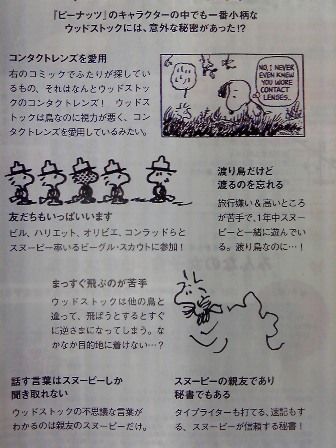 『ピーナッツ』のキャラクターの中でも一番小柄な
ウッドストックには、意外な秘密があった!?
コンタクトレンズを愛用
右のコミックでふたりが探してい
るもの、それはなんとウッドストッ
クのコンタクトレンズ! ウッドス
トックは鳥なのに視力が悪く、コン
タクトレンズを愛用しているみたい。
NO, I NEVER
EVEN KNEW
YOU WORE
CONTACT
LENSES..
友だちもいっぱいいます
ビル、ハリエット、オリビエ、コンラッドらと
スヌーピー率いるビーグル・スカウトに参加!
渡り鳥だけど
渡るのを忘れる
旅行嫌い&高いところ
が苦手で、1年中スヌー
ピーと一緒に遊んでい
る。渡り鳥なのに…!
まっすぐ飛ぶのが苦手
ウッドストックは他の鳥と
違って、飛ぼうとするとす
ぐに逆さまになってしまう。な
かなか目的地に着けない…?
話す言葉はスヌーピーしか
聞き取れない
ウッドストックの不思議な言葉が
わかるのは親友のスヌーピーだけ。
スヌーピーの親友であり
秘書でもある
タイプライターも打てる、速記もも
する、スヌーピーが信頼する秘書!